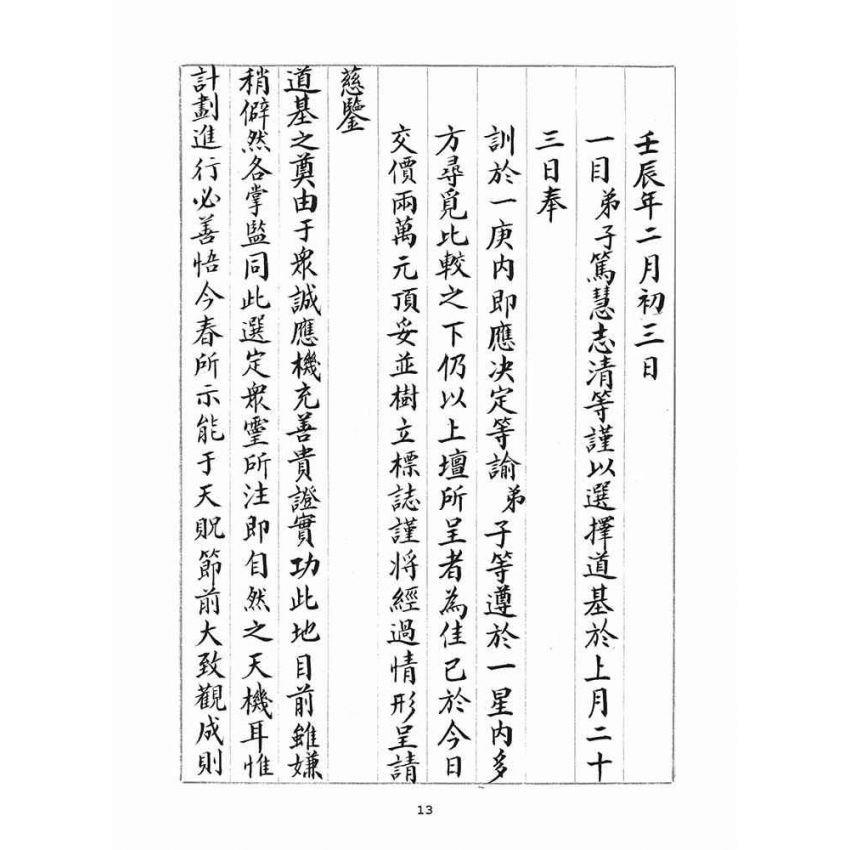 壬辰年二月初三日
一目弟子篤慧志清等謹以選擇道基於上月二十
三日奉
訓於一庚内即應決定等諭弟子等遵於一星内多
方尋覓比較之下仍以上壇所呈者為佳已於今日
交價兩萬元頂妥並樹立標誌謹將經過情形呈請
慈鑒
道基之奠由于衆誠應機充善貴證實功此地目前雖嫌
稍僻然各掌監同此選定衆靈所注即自然之天機耳惟
計劃進行必善悟今春所示能于天貺節前大致觀成則
13